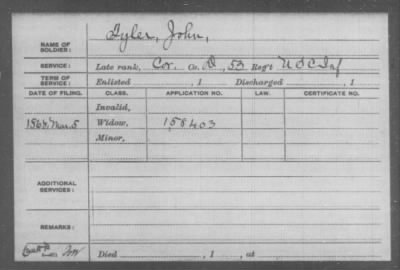 NAME OF SOLDIER: Tyler, John,
SERVICE: Late rank, Cor. Co. D, 53 Reg't U S C Inf
TERM OF SERVICE: Enlisted , 1 Discharged , 1
DATE OF FILING. CLASS. APPLICATION NO. LAW. CERTIFICATE NO.
Invalid,
1868, Mar. 5 Widow, 158403
Minor,
ADDITIONAL SERVICES:
REMARKS:
Died , 1 , at